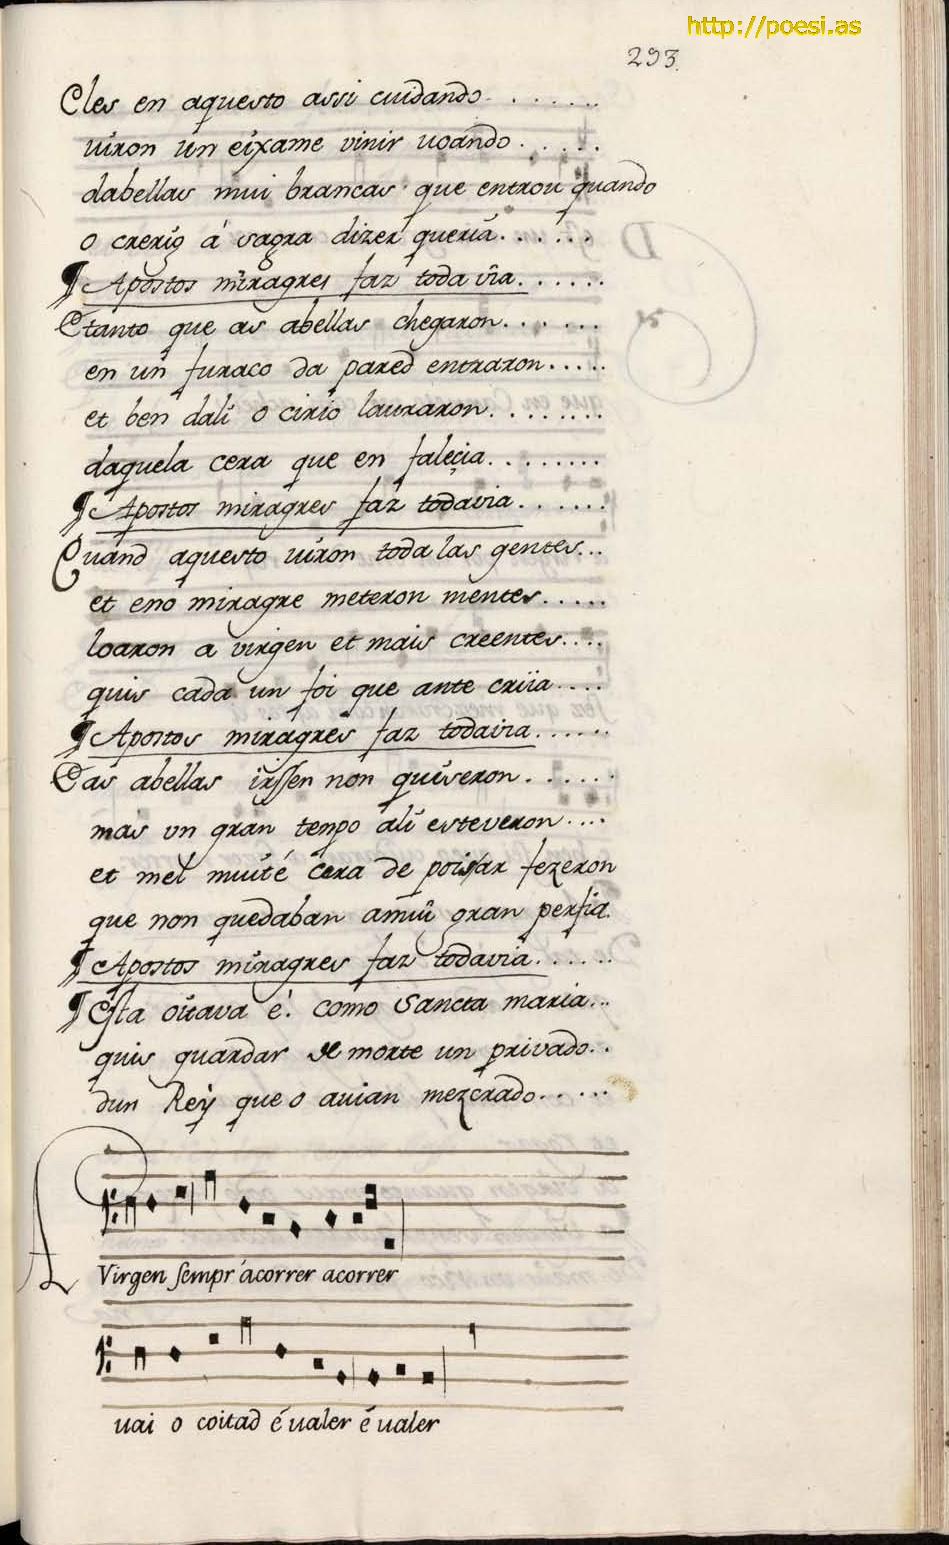 http://poesi.as
293.
Eles en aquesto assi cuidando . . . . . . .
uiron un eixame vinir uoando . . . . .
dabellas mui brancas que entrou quando
o crerig á sagra dizer queria . . . . . .
¶ Apostos miragres faz toda via . . . . . .
E tanto que as abellas chegaron . . . . . .
en un furaco da pared entraron . . . . .
et ben dali o cirio lauraron . . . . . . . .
daquela cera que en faleçia . . . . . . . .
¶ Apostos miragres faz todavia . . . . . .
Quand aquesto uiron toda las gentes . . .
et eno miragre meteron mentes . . . . .
loaron a virgen et mais creentes . . . .
quis cada un foi que ante criia . . . .
¶ Apostos miragres faz todavia . . . . . .
E as abellas irssen non quiseron . . . . . .
mas un gran tenpo ali esteveron . . . .
et mel muit é cera de poissar fezeron
que non quedaban amui gran perfia.
¶ Apostos miragres faz todavia . . . . . .
¶ Esta oitava é. como Sancta maria . . .
quis guardar de morte un privado . .
dun Rey que o auian mezcrado . . . . .
A Virgen sempr' acorrer acorrer
uai o coitad é ualer é ualer